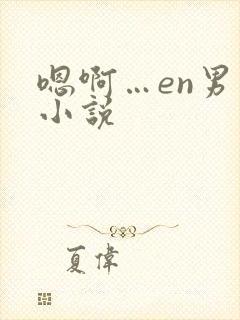 嗯啊…en男
小説
夏偉